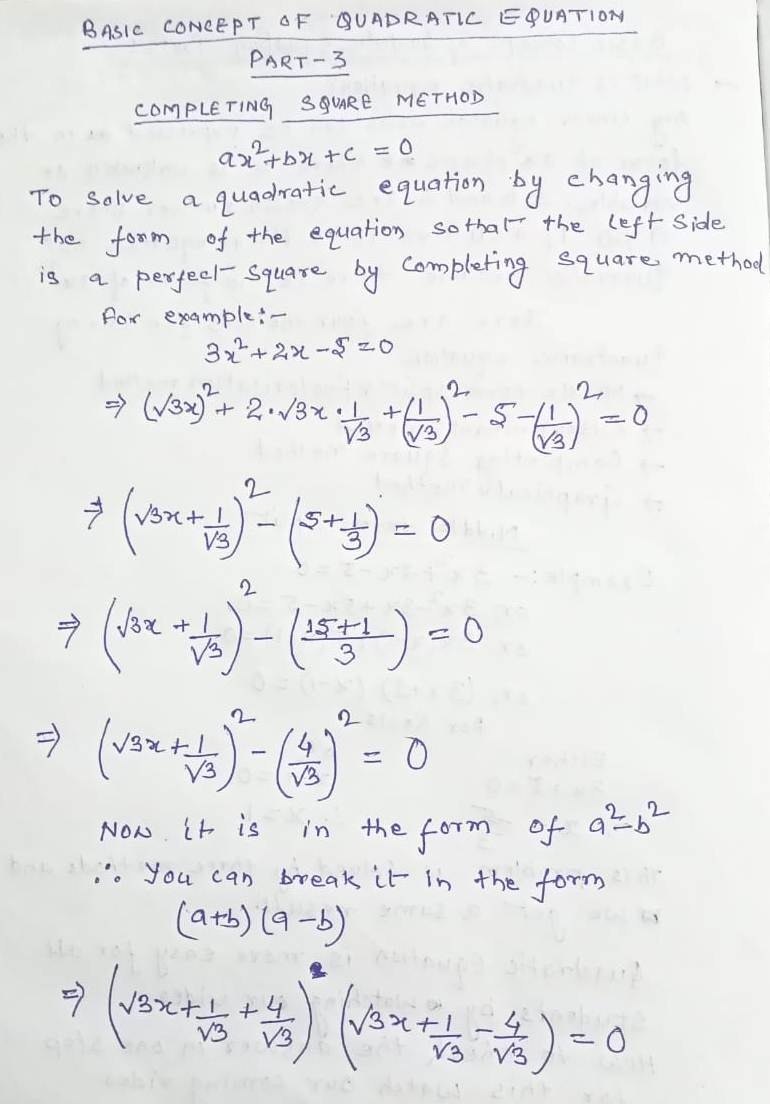 BASIC CONCEPT OF QUADRATIC EQUATION
PART-3
COMPLETING SQUARE METHOD
ax²+bx+c = 0
To solve a quadratic equation by changing
the form of the equation so that the left side
is a perfect square by completing square method
for example:-
3x²+2x-5=0
⇒ (√3x)² + 2·√3x·1/√3 + (1/√3)² - 5 - (1/√3)² = 0
⇒ (√3x + 1/√3)² - (5+1/3) = 0
⇒ (√3x + 1/√3)² - (15+1/3) = 0
⇒ (√3x + 1/√3)² - (4/√3)² = 0
NOW it is in the form of a²-b²
∴ You can break it in the form
(a+b)(a-b)
⇒ (√3x + 1/√3 + 4/√3) (√3x + 1/√3 - 4/√3) = 0